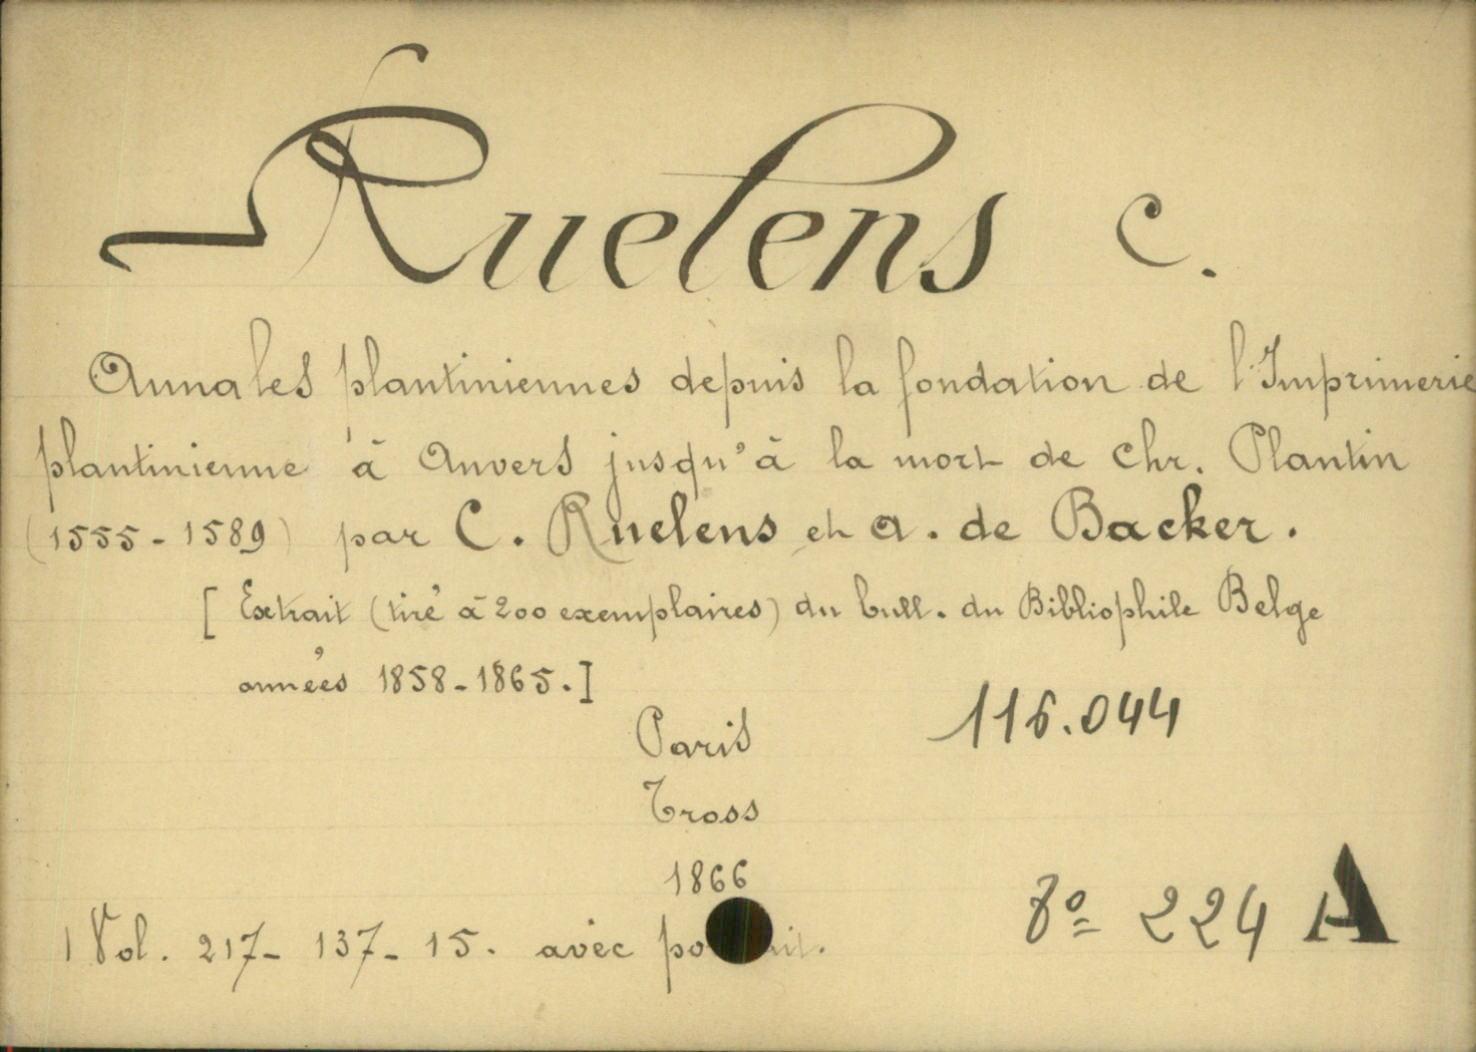 Ruelens C.
Annales plantiniennes depuis la fondation de l'Imprimerie
plantinienne à Anvers jusqu'à la mort de Chr. Plantin
(1555-1589) par C. Ruelens et A. de Backer.
[Extrait (tiré à 200 exemplaires) du bull. du Bibliophile Belge
années 1858-1865.]
Paris
116.044
Tross
1866
8º 224 A
1 Vol. 217- 137- 15. avec